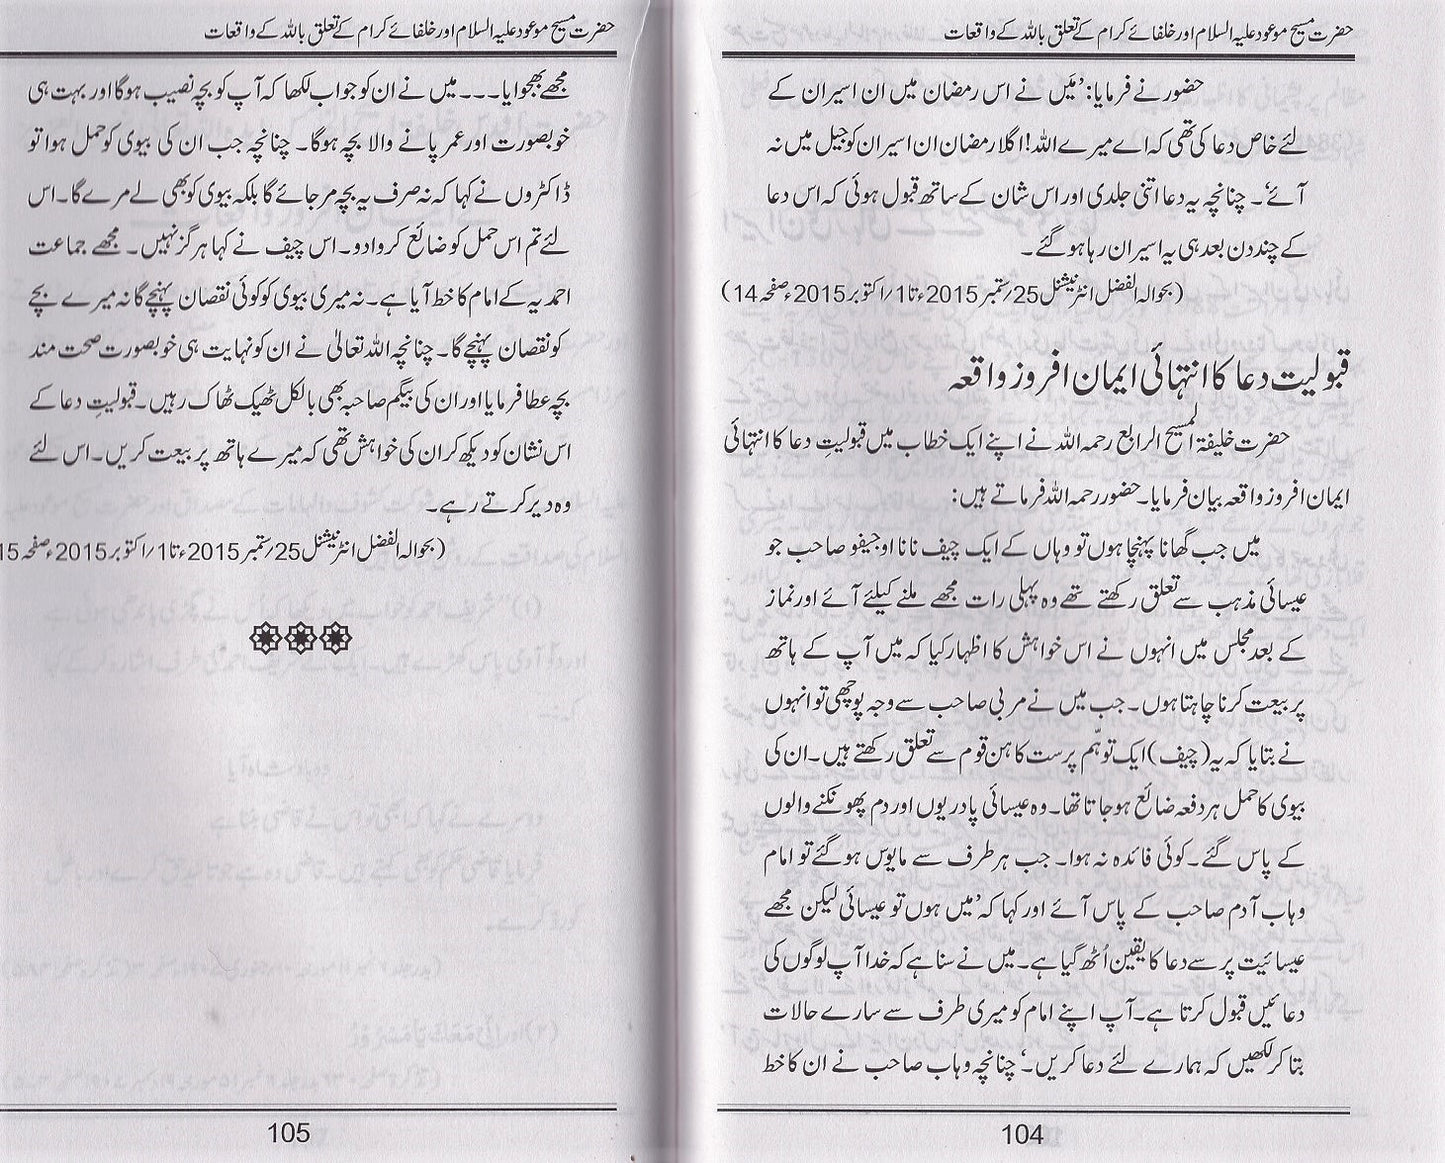 حضرت مسیح موعود علیہ السلام اور خلفائے کرام کے تعلق باللہ کے واقعات
حضور نے فرمایا: ’مَیں نے اس رمضان میں ان اسیران کے
لئے خاص دعا کی تھی کہ اے میرے اللہ! اگلا رمضان ان اسیران کو جیل میں نہ
آئے‘۔ چنانچہ یہ دعا اتنی جلدی اور اس شان کے ساتھ قبول ہوئی کہ اس دعا
کے چند دن بعد ہی یہ اسیران رہا ہو گئے۔
(بحوالہ الفضل انٹرنیشنل 25؍ستمبر 2015ء تا 1؍اکتوبر 2015ء صفحہ 14)
قبولیت دعا کا انتہائی ایمان افروز واقعہ
حضرت خلیفۃ المسیح الرابع رحمہ اللہ نے اپنے ایک خطاب میں قبولیتِ دعا کا انتہائی
ایمان افروز واقعہ بیان فرمایا۔ حضور رحمہ اللہ فرماتے ہیں:
میں جب گھانا پہنچا ہوں تو وہاں کے ایک چیف نانا اوجیفو صاحب جو
عیسائی مذہب سے تعلق رکھتے تھے وہ پہلی رات مجھے ملنے کیلئے آئے اور نماز
کے بعد مجلس میں انہوں نے اس خواہش کا اظہار کیا کہ میں آپ کے ہاتھ
پر بیعت کرنا چاہتا ہوں۔ جب میں نے مربی صاحب سے وجہ پوچھی تو انہوں
نے بتایا کہ یہ (چیف) ایک توہّم پرست کاہن قوم سے تعلق رکھتے ہیں۔ ان کی
بیوی کا حمل ہر دفعہ ضائع ہو جاتا تھا۔ وہ عیسائی پادریوں اور دم پھونکنے والوں
کے پاس گئے۔ کوئی فائدہ نہ ہوا۔ جب ہر طرف سے مایوس ہو گئے تو امام
وہاب آدم صاحب کے پاس آئے اور کہا کہ ’میں ہوں تو عیسائی لیکن مجھے
عیسائیت پر سے دعا کا یقین اُٹھ گیا ہے۔ میں نے سنا ہے کہ خدا آپ لوگوں کی
دعائیں قبول کرتا ہے۔ آپ اپنے امام کو میری طرف سے سارے حالات
بتا کر لکھیں کہ ہمارے لئے دعا کریں‘۔ چنانچہ وہاب صاحب نے ان کا خط
104
حضرت مسیح موعود علیہ السلام اور خلفائے کرام کے تعلق باللہ کے واقعات
مجھے بھجوایا۔۔۔ میں نے ان کو جواب لکھا کہ آپ کو بچہ نصیب ہوگا اور بہت ہی
خوبصورت اور عمر پانے والا بچہ ہوگا۔ چنانچہ جب ان کی بیوی کو حمل ہوا تو
ڈاکٹروں نے کہا کہ نہ صرف یہ بچہ مر جائے گا بلکہ بیوی کو بھی لے مرے گا۔ اس
لئے تم اس حمل کو ضائع کروا دو۔ اس چیف نے کہا ہرگز نہیں۔ مجھے جماعت
احمدیہ کے امام کا خط آیا ہے۔ نہ میری بیوی کو کوئی نقصان پہنچے گا نہ میرے بچے
کو نقصان پہنچے گا۔ چنانچہ اللہ تعالیٰ نے ان کو نہایت ہی خوبصورت صحت مند
بچہ عطا فرمایا اور ان کی بیگم صاحبہ بھی بالکل ٹھیک ٹھاک رہیں۔ قبولیتِ دعا کے
اس نشان کو دیکھ کر ان کی خواہش تھی کہ میرے ہاتھ پر بیعت کریں۔ اس لئے
وہ دیر کرتے رہے۔
(بحوالہ الفضل انٹرنیشنل 25؍ستمبر 2015ء تا 1؍اکتوبر 2015ء صفحہ 15
105